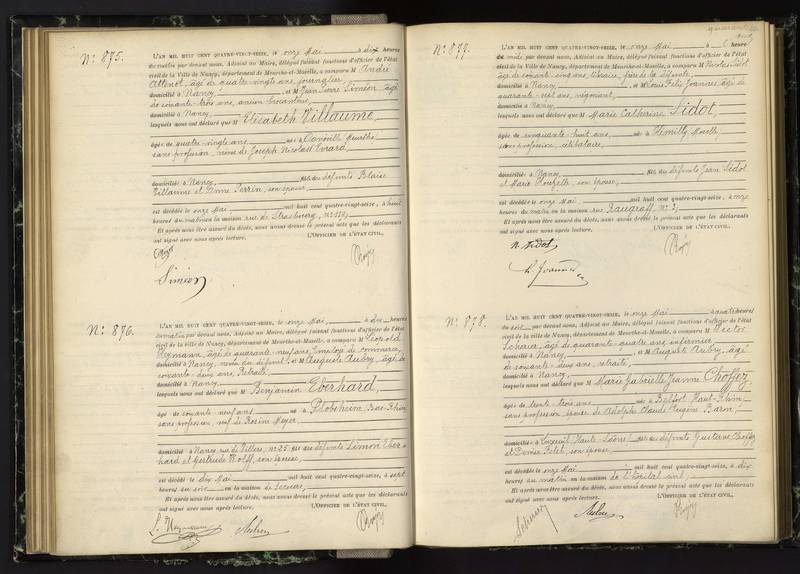 N: 875.
L'AN MIL HUIT CENT QUATRE-VINGT-SEIZE, le onze Mai, à dix heures
du matin par devant nous, Adjoint au Maire, délégué faisant fonctions d'officier de l'état
civil de la Ville de Nancy, département de Meurthe-et-Moselle, a comparu M André
âgé de quatre-vingts ans, journalier,
domicilié à Nancy, et M Jean Pierre Siméon, âgé
de soixante-trois ans, ancien
domicilié à Nancy,
lesquels nous ont déclaré que M Elisabeth Villaume,
âgée de quatre-vingts ans, née à Meurthe
sans profession, veuve de Joseph Nicolas Evrard,
domiciliée à Nancy, fille des défunts Blaise
Villaume et Anne Perrin, son épouse,
est décédée le onze Mai, mil huit cent quatre-vingt-seize, à huit
heures du matin en la maison rue de Strasbourg, n: 119,
Et après nous être assuré du décès, nous avons dressé le présent acte que les déclarants
ont signé avec nous après lecture. L'OFFICIER DE L'ÉTAT CIVIL,
Siméon
N: 876.
L'AN MIL HUIT CENT QUATRE-VINGT-SEIZE, le onze Mai, à dix heures
du matin par devant nous, Adjoint au Maire, délégué faisant fonctions d'officier de l'état
civil de la ville de Nancy, département de Meurthe-et-Moselle, a comparu M Léopold
âgé de quarante-neuf ans, Employé de commerce,
domicilié à Nancy, neveu du défunt, et M Auguste Aubry, âgé de
soixante-deux ans, Retraité,
domicilié à Nancy,
lesquels nous ont déclaré que M Benjamin Eberhard,
âgé de soixante-neuf ans, né à Plobsheim, Bas-Rhin,
sans profession, veuf de Rosine Meyer,
domicilié à Nancy, rue de Villers, n: 25, fils des défunts Simon Eber-
hard et Gertrude Wolff, son épouse,
est décédé le dix Mai, mil huit cent quatre-vingt-seize, à sept
heures du soir, en la maison de Secours,
Et après nous être assuré du décès, nous avons dressé le présent acte que les déclarants
ont signé avec nous après lecture. L'OFFICIER DE L'ÉTAT CIVIL,
N: 877.
L'AN MIL HUIT CENT QUATRE-VINGT-SEIZE, le onze Mai, à heures
du par devant nous, Adjoint au Maire, délégué faisant fonctions d'officier de l'état
civil de la Ville de Nancy, département de Meurthe-et-Moselle, a comparu M Nicolas Sidot
âgé de soixante-cinq ans, libraire, frère de la défunte,
domicilié à Nancy, et M Louis Felix Joannes, âgé de
quarante-sept ans, négociant,
domicilié à Nancy,
lesquels nous ont déclaré que M Marie Catherine Sidot,
âgée de cinquante-huit ans, née à Remilly, Moselle
sans profession, célibataire,
domiciliée à Nancy, fille des défunts Jean Sidot
et Marie son épouse,
est décédée le onze Mai, mil huit cent quatre-vingt-seize, à onze
heures du matin, en la maison rue Raugraff, n: 2,
Et après nous être assuré du décès, nous avons dressé le présent acte que les déclarants
ont signé avec nous après lecture. L'OFFICIER DE L'ÉTAT CIVIL,
N. Sidot
N: 878.
L'AN MIL HUIT CENT QUATRE-VINGT-SEIZE, le onze Mai, à quatre heures
du soir, par devant nous, Adjoint au Maire, délégué faisant fonctions d'officier de l'état
civil de la ville de Nancy, département de Meurthe-et-Moselle, a comparu M Victor
âgé de quarante-quatre ans, infirmier,
domicilié à Nancy, et M Auguste Aubry, âgé
de soixante-deux ans, retraité,
domicilié à Nancy,
lesquels nous ont déclaré que M Marie Gabrielle Jeanne Choffez,
âgée de trente-trois ans, née à Belfort, Haut-Rhin
sans profession, épouse de Adolphe Claude Eugène Baron,
domiciliée à Luxeuil, Haute-Saône, fille des défunts Gustave Choffez
et Louise son épouse,
est décédée le onze Mai, mil huit cent quatre-vingt-seize, à dix
heures du matin en la maison de l'hôpital civil,
Et après nous être assuré du décès, nous avons dressé le présent acte que les déclarants
ont signé avec nous après lecture. L'OFFICIER DE L'ÉTAT CIVIL,